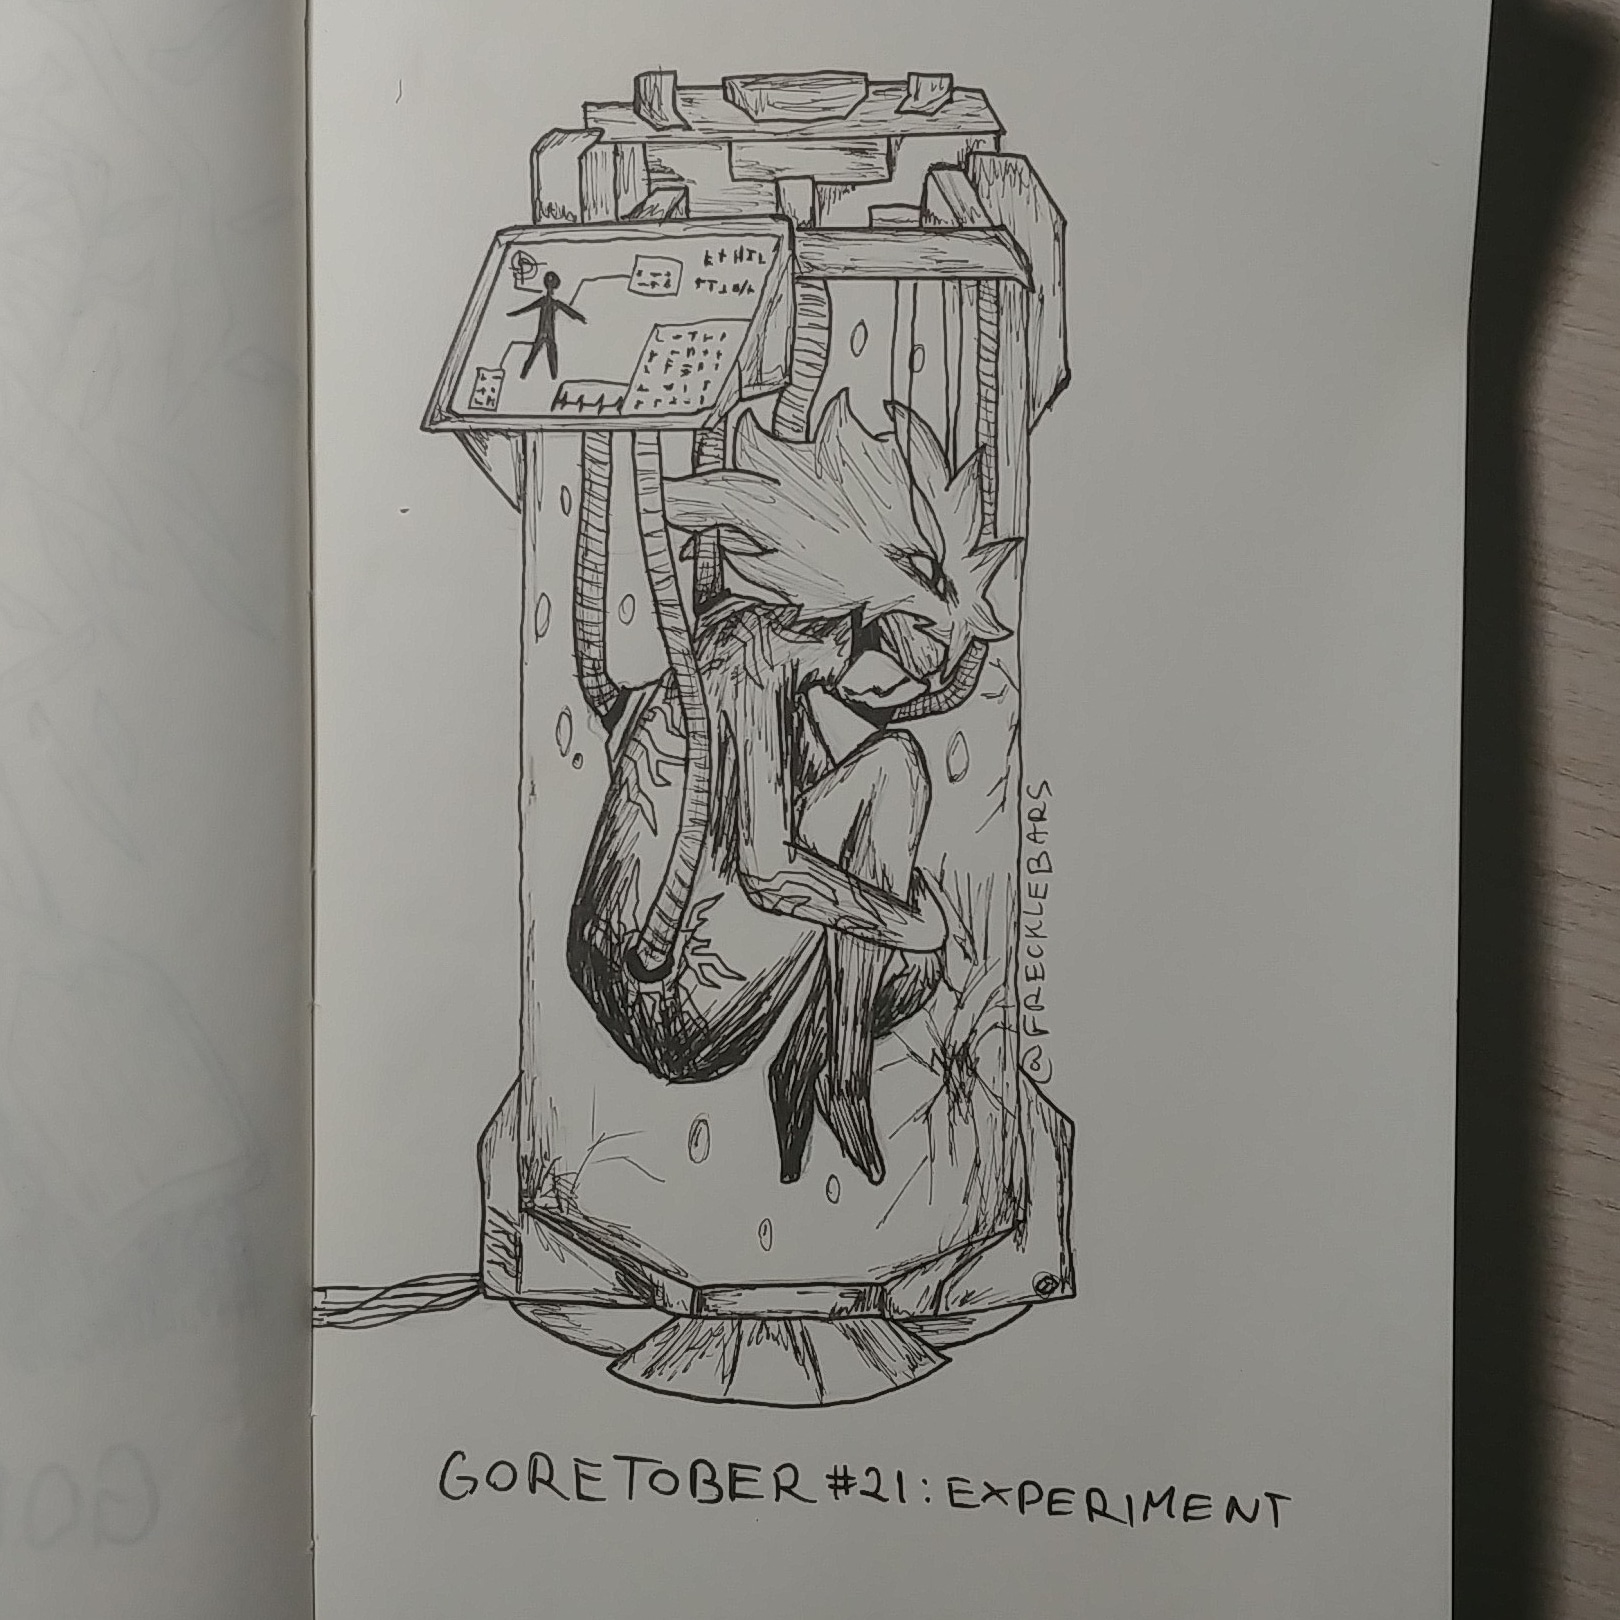 @FRECKLEBARS
GORETOBER #21: EXPERIMENT